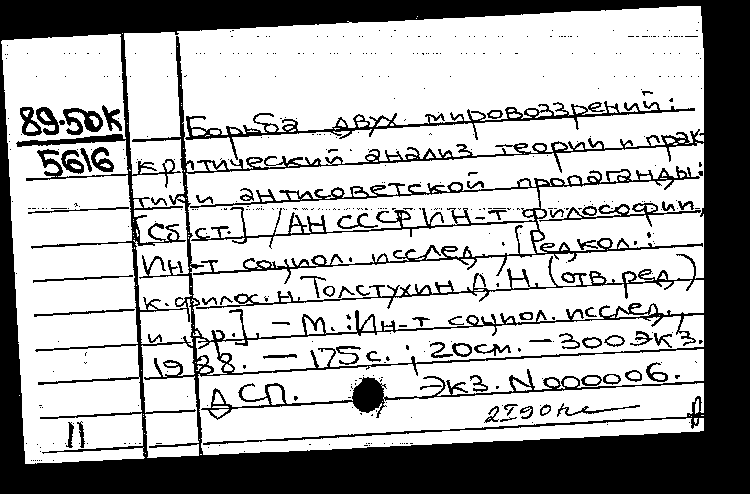 89-50К
5616
Борьба двух мировоззрений:
критический анализ теории и прак
тики антисоветской пропаганды:
[Сб.ст.] / АН СССР, Ин-т философии,
Ин-т социол. исслед. ; [Редкол.:
к.филос.н. Толстухин Д.Н. (отв.ред.)
и др.]. - М. : Ин-т социол. исслед.,
1988. - 175 с. ; 20 см. - 300 экз.
ДСП. Экз. N 000006.
11